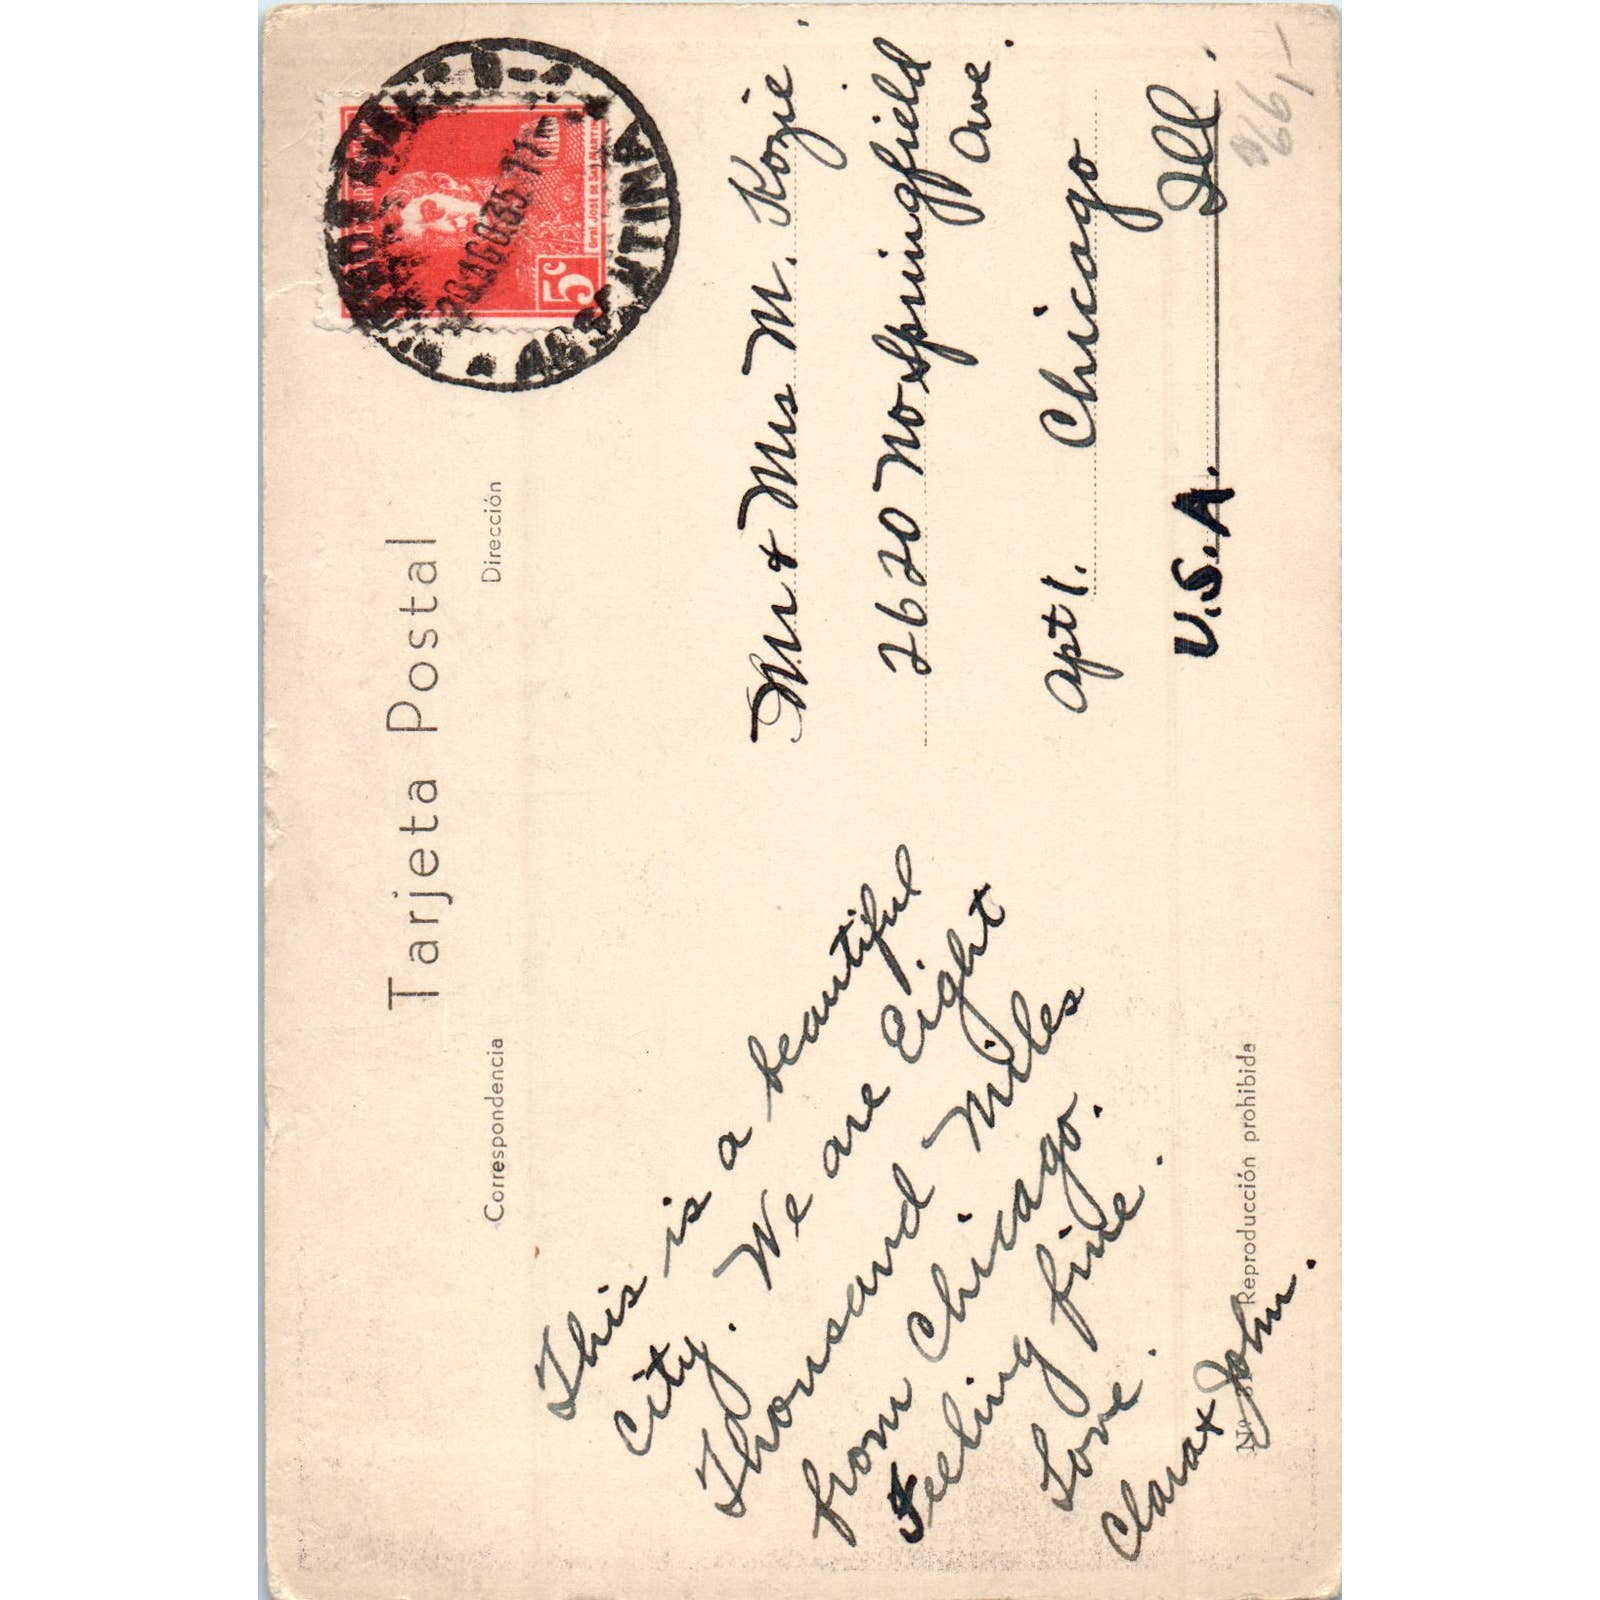 Tarjeta Postal
Correspondencia
Dirección
This is a beautiful
City. We are Eight
Thousand Miles
from Chicago.
Feeling fine.
Love.
Clara & John.
Mr & Mrs M. Kozie
2620 No Springfield
Ave.
Apt 1. Chicago
Ill.
U.S.A.
Nº
Reproducción prohibida
5c
Gral José de San Martin
ARGENTINA